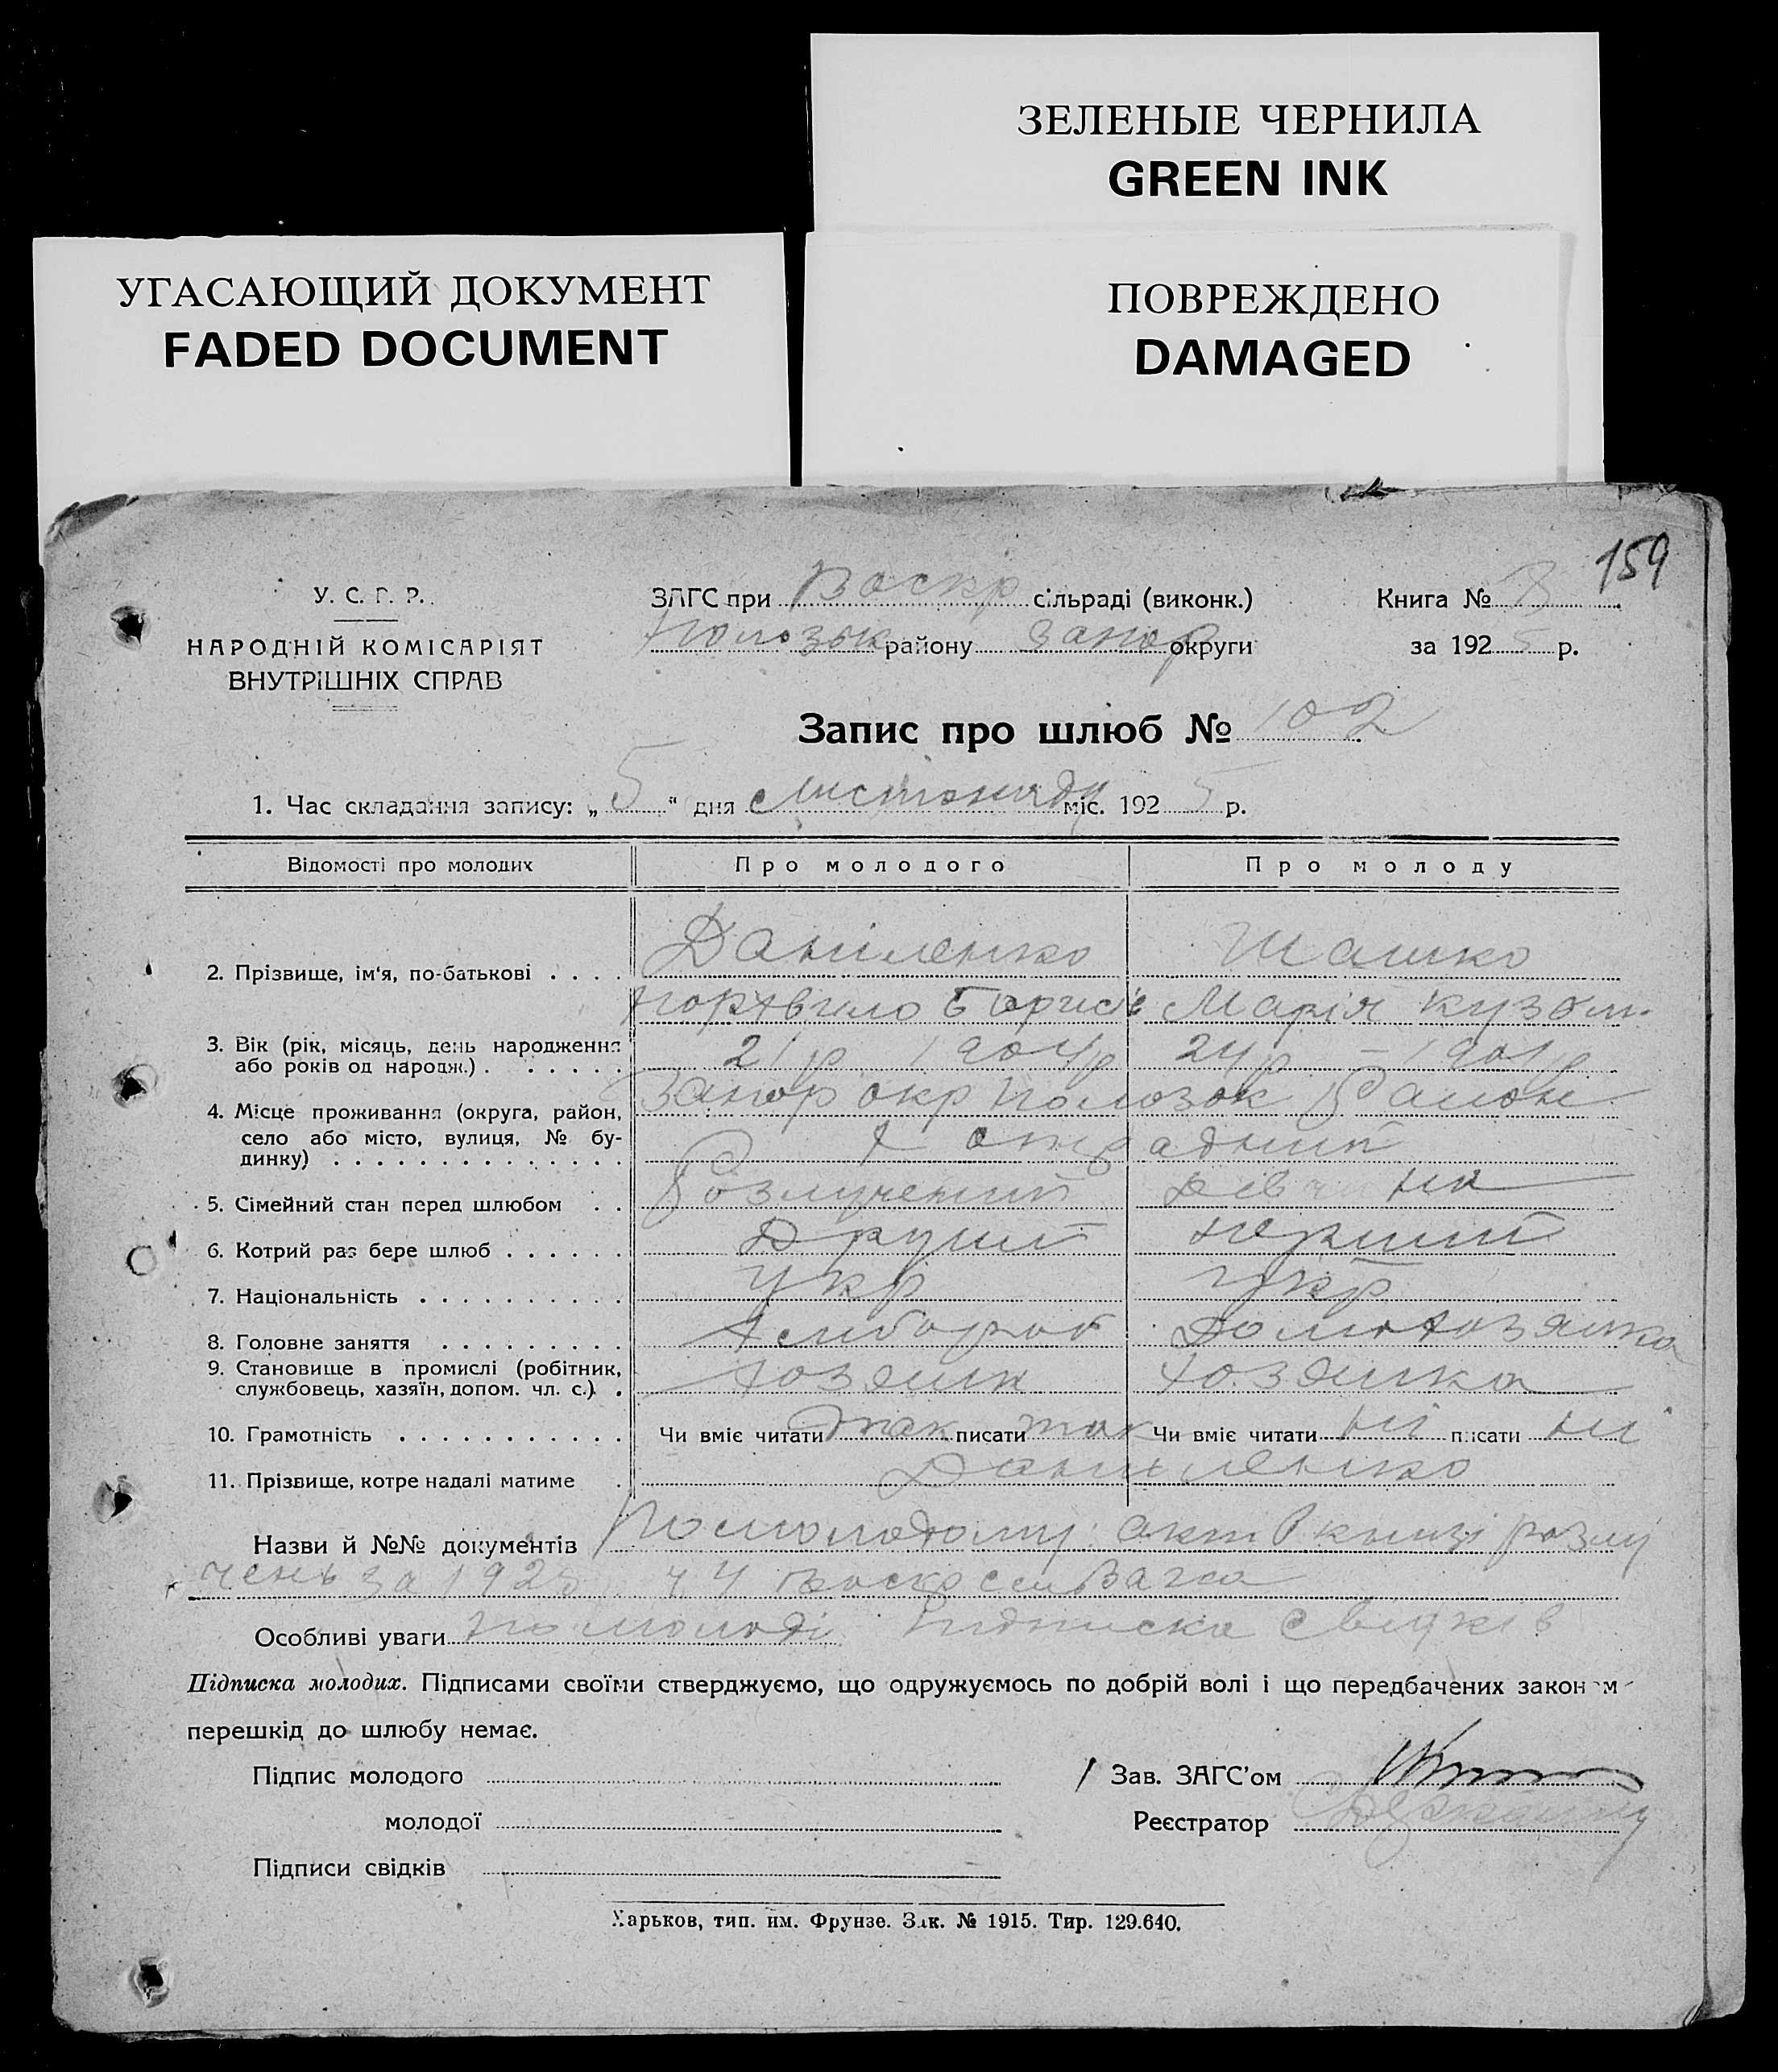 ЗЕЛЕНЫЕ ЧЕРНИЛА
GREEN INK
УГАСАЮЩИЙ ДОКУМЕНТ
FADED DOCUMENT
ПОВРЕЖДЕНО
DAMAGED
159
У. С. Р. Р.
НАРОДНІЙ КОМІСАРІЯТ
ВНУТРІШНІХ СПРАВ
ЗАГС при Воскр сільраді (виконк.) Книга №
Полозьк району Запор округи за 1925 р.
Запис про шлюб № 102
1. Час складання запису: „5" дня Листопаду міс. 1925 р.
Відомості про молодих Про молодого Про молоду
2. Прізвище, ім'я, по-батькові Даніленко Шашко
Борисів Марія Кузьм.
3. Вік (рік, місяць, день народження або років од народж.) 21 р 1904 р 24 р – 1901 р
4. Місце проживання (округа, район, село або місто, вулиця, № будинку) Запор окр Полозьк Район
х отрадний
5. Сімейний стан перед шлюбом Розлучений дівчина
6. Котрий раз бере шлюб Другий перший
7. Національність Укр Укр
8. Головне заняття Хлибороб Домохозяйка
9. Становище в промислі (робітник, службовець, хазяїн, допом. чл. с.) хозяин хозяйка
10. Грамотність Чи вміє читати так писати так Чи вміє читати ні писати ні
11. Прізвище, котре надалі матиме Даниленко
Назви й №№ документів По молодому: акт в книзі розлу
чень за 1925 ч 4 Воскресен Загса
Особливі уваги по молоді Підписка свідків
Підписка молодих. Підписами своїми стверджуємо, що одружуємось по добрій волі і що передбачених законом
перешкід до шлюбу немає.
Підпис молодого Зав. ЗАГС'ом
молодої Реєстратор
Підписи свідків
Харьков, тип. им. Фрунзе. Зак. № 1915. Тир. 129.640.